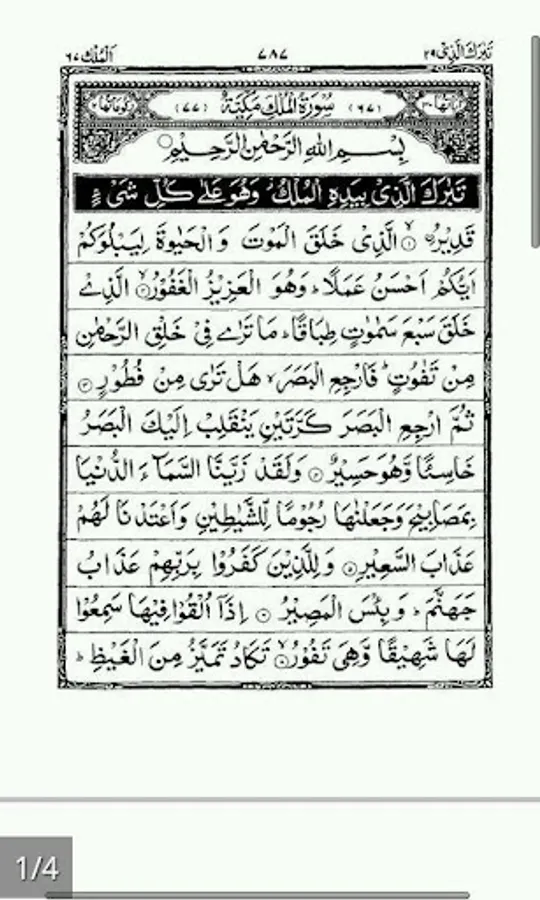 تَبٰرَكَ الَّذِیْ ۲۹ ۷۸۷ اَلْمُلْك ۶۷
اٰیاتُهَا ۳۰ (۶۷) سُوْرَةُ الْمُلْكِ مَكِّیَّةٌ (۷۷) رُكُوْعَاتُهَا ۲
بِسْمِ اللهِ الرَّحْمٰنِ الرَّحِیْمِ
تَبٰرَكَ الَّذِیْ بِیَدِهِ الْمُلْكُ وَهُوَ عَلٰی كُلِّ شَیْءٍ
قَدِیْرُ ۙ﴿۱﴾ الَّذِیْ خَلَقَ الْمَوْتَ وَ الْحَیٰوةَ لِیَبْلُوَكُمْ
اَیُّكُمْ اَحْسَنُ عَمَلًا ؕ وَهُوَ الْعَزِیْزُ الْغَفُوْرُ ۙ﴿۲﴾ الَّذِیْ
خَلَقَ سَبْعَ سَمٰوٰتٍ طِبَاقًا ؕ مَا تَرٰی فِیْ خَلْقِ الرَّحْمٰنِ
مِنْ تَفٰوُتٍ ؕ فَارْجِعِ الْبَصَرَ ۙ هَلْ تَرٰی مِنْ فُطُوْرٍ ﴿۳﴾
ثُمَّ ارْجِعِ الْبَصَرَ كَرَّتَیْنِ یَنْقَلِبْ اِلَیْكَ الْبَصَرُ
خَاسِئًا وَّهُوَ حَسِیْرٌ ﴿۴﴾ وَلَقَدْ زَیَّنَّا السَّمَآءَ الدُّنْیَا
بِمَصَابِیْحَ وَجَعَلْنٰهَا رُجُوْمًا لِّلشَّیٰطِیْنِ وَاَعْتَدْنَا لَهُمْ
عَذَابَ السَّعِیْرِ ﴿۵﴾ وَلِلَّذِیْنَ كَفَرُوْا بِرَبِّهِمْ عَذَابُ
جَهَنَّمَ ؕ وَبِئْسَ الْمَصِیْرُ ﴿۶﴾ اِذَاۤ اُلْقُوْا فِیْهَا سَمِعُوْا
لَهَا شَهِیْقًا وَّهِیَ تَفُوْرُ ۙ﴿۷﴾ تَكَادُ تَمَیَّزُ مِنَ الْغَیْظِ ؕ
1/4